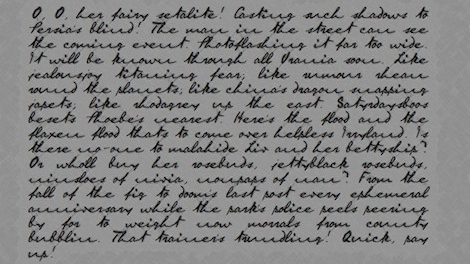 O, O, her fairy setalite! Casting such shadows to
Persia's blind! The man in the street can see
the coming event. Photoflashing it far too wide.
It will be known through all Urania soon. Like
jealousjoy titaning fear; like rumour rhean
round the planets; like china's dragon snapping
japets; like rhodagrey up the east. Satyrdaysboos
besets Phoebe's nearest. Here's the flood and the
flaxen flood thats to come over helpless Irryland. Is
there no-one to malahide Liv and her bettyship?
Or wholl buy her rosebuds, jettyblack rosebuds,
ninsloes of nivia, nonpaps of nan? From the
fall of the fig to doom's last post every ephemeral
anniversary while the park's police peels peering
by for to weight now morrals from county
bubblin. That trainer's trundling! Quick, pay
up!